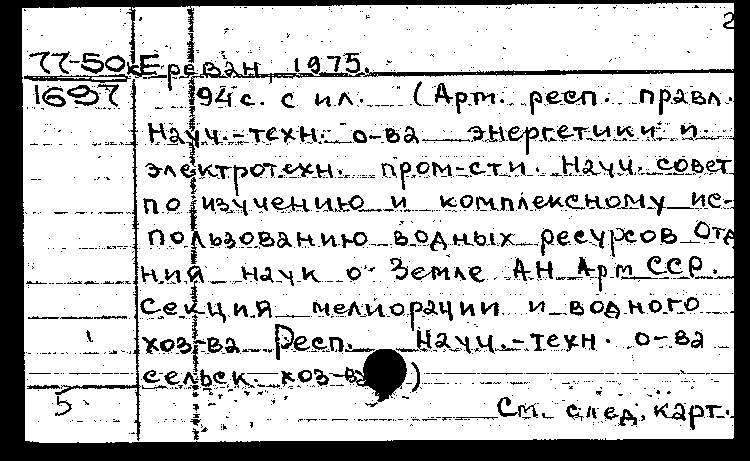 2
77-50к Ереван, 1975.
1697 94 с. с ил. (Арм. респ. правл.
Науч.-техн. о-ва энергетики и
электротехн. пром-сти. Науч. совет
по изучению и комплексному ис-
пользованию водных ресурсов Отд
ния наук о Земле АН Арм ССР.
Секция мелиорации и водного
хоз-ва Респ. Науч.-техн. о-ва
сельск. хоз-ва)
5 См. след. карт.